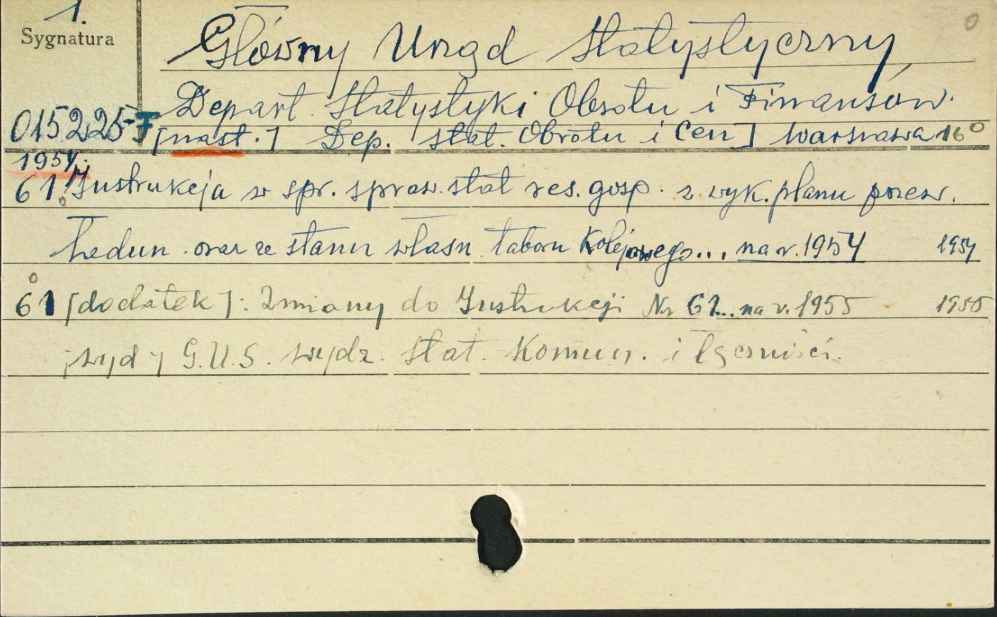 1.
Sygnatura
Główny Urząd Statystyczny,
0
Depart. Statystyki Obrotu i Finansów.
015225-F
[nast.] Dep. stat. Obrotu i Cen] Warszawa 16°
1954.
61. Instrukcja w spr. spraw. stat res. gosp. z wyk. planu przew.
ładun. oraz ze stanu własn. taboru Kolejowego... na r. 1954 1954
61 [dodatek]: Zmiany do Instrukcji Nr 61... na r. 1955 1955
[wyd] G.U.S. wydz. Stat. Komun. i Łączności.